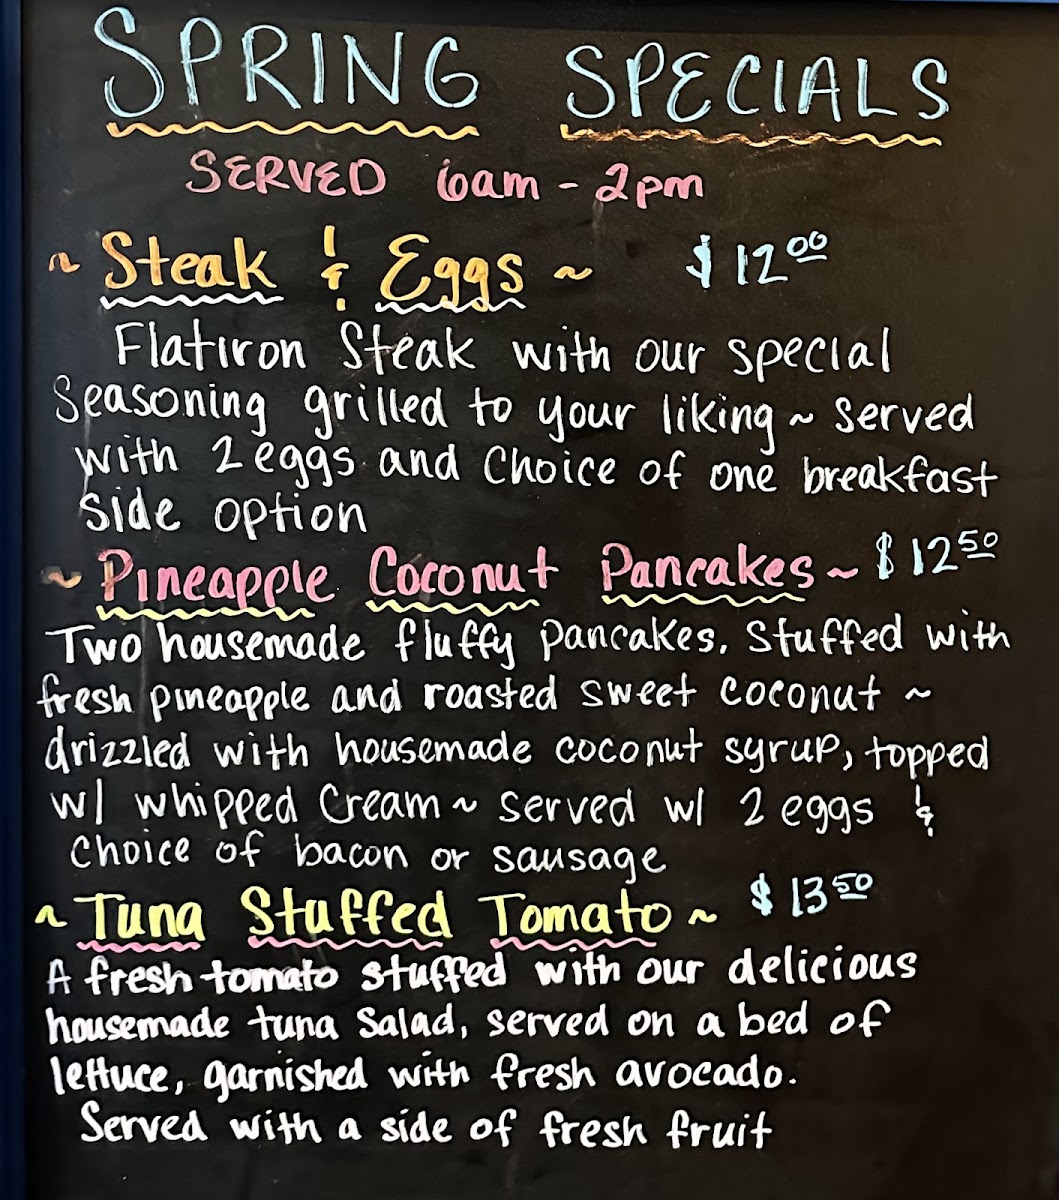 SPRING SPECIALS
SERVED 6am - 2pm
~ Steak & Eggs ~ $12.00
Flatiron Steak with our special
Seasoning grilled to your liking ~ served
with 2 eggs and choice of one breakfast
side option
~ Pineapple Coconut Pancakes ~ $12.50
Two housemade fluffy pancakes. Stuffed with
fresh pineapple and roasted sweet coconut ~
drizzled with housemade coconut syrup, topped
w/ whipped cream ~ served w/ 2 eggs &
choice of bacon or sausage
~ Tuna Stuffed Tomato ~ $13.50
A fresh tomato stuffed with our delicious
housemade tuna salad, served on a bed of
lettuce, garnished with fresh avocado.
Served with a side of fresh fruit